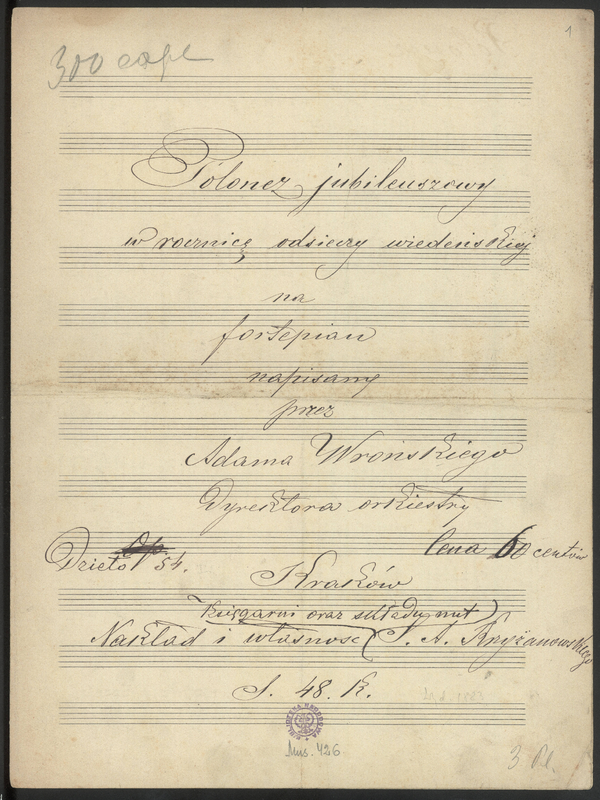 1
300 expl
Polonez jubileuszowy
w rocznicę odsieczy wiedeńskiej
na
fortepian
napisany
przez
Adama Wrońskiego
Dyrektora orkiestry
Dzieło 54.
Cena 60 centów
Kraków
Księgarni oraz składu nut
Nakład i własność S. A. Krzyżanowskiego
S. 48. K.
BIBLIOTEKA NARODOWA
Mus. 426
3 Pl.